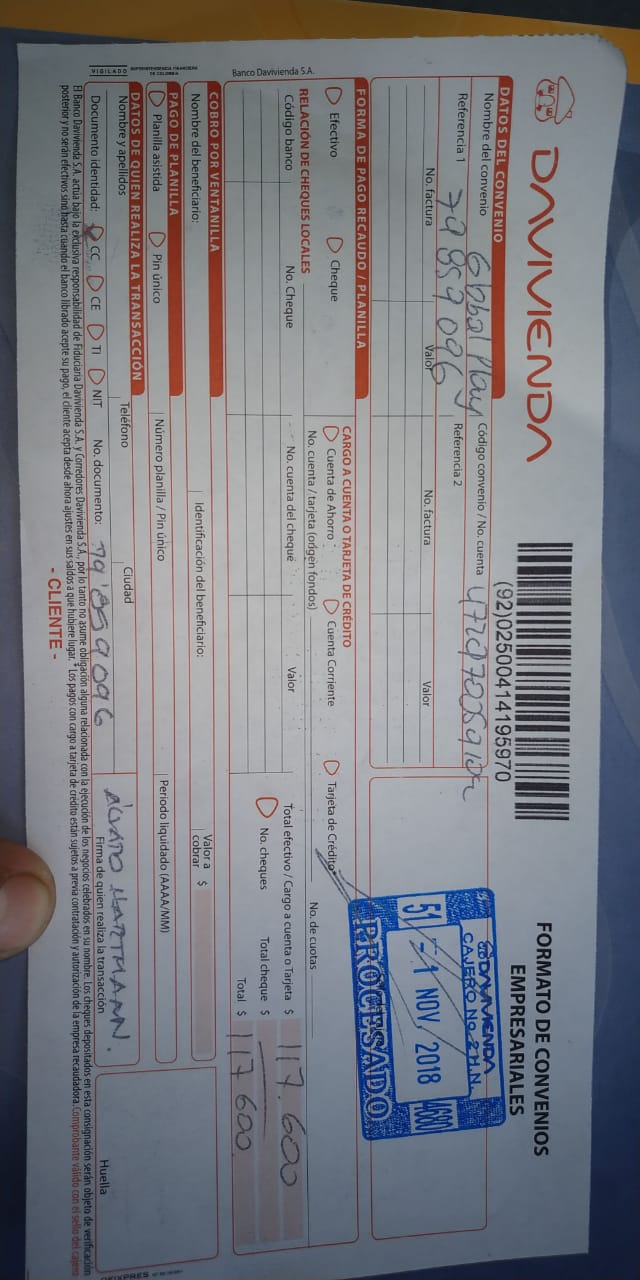 DAVIVIENDA
(92)02500414195970
FORMATO DE CONVENIOS
EMPRESARIALES
DATOS DEL CONVENIO
Nombre del convenio Global Play Código convenio / No. cuenta
Referencia 1 79859096 Referencia 2
No. factura Valor No. factura Valor
DAVIVIENDA
CAJERO No. 2 H.N.
51 -1 NOV. 2018 4680
PROCESADO
FORMA DE PAGO RECAUDO / PLANILLA
Efectivo Cheque
CARGO A CUENTA O TARJETA DE CRÉDITO
Cuenta de Ahorro Cuenta Corriente Tarjeta de Crédito
No. cuenta / tarjeta (origen fondos) No. de cuotas
RELACIÓN DE CHEQUES LOCALES
Código banco No. Cheque No. cuenta del cheque Valor
Total efectivo / Cargo a cuenta o Tarjeta $ 117.600
No. cheques Total cheque $
Total $ 117 600
COBRO POR VENTANILLA
Nombre del beneficiario: Identificación del beneficiario: Valor a cobrar $
PAGO DE PLANILLA
Planilla asistida Pin único Número planilla / Pin único Periodo liquidado (AAAA/MM)
DATOS DE QUIEN REALIZA LA TRANSACCIÓN
Nombre y apellidos Teléfono Ciudad
Documento identidad: CC CE TI NIT No. documento: 79'859096
Firma de quien realiza la transacción
Huella
El Banco Davivienda S.A. actúa bajo la exclusiva responsabilidad de Fiduciaria Davivienda S.A. y Corredores Davivienda S.A., por lo tanto no asume obligación alguna relacionada con la ejecución de los negocios celebrados en su nombre. Los cheques depositados en esta consignación serán objeto de verificación
posterior y no serán efectivos sino hasta cuando el banco librado acepte su pago, el cliente acepta desde ahora ajustes en sus saldos a que hubiere lugar. Los pagos con cargo a tarjeta de crédito están sujetos a previa contratación y autorización de la empresa recaudadora. Comprobante válido con el sello del cajero
- CLIENTE -
Banco Davivienda S.A.
VIGILADO SUPERINTENDENCIA FINANCIERA DE COLOMBIA